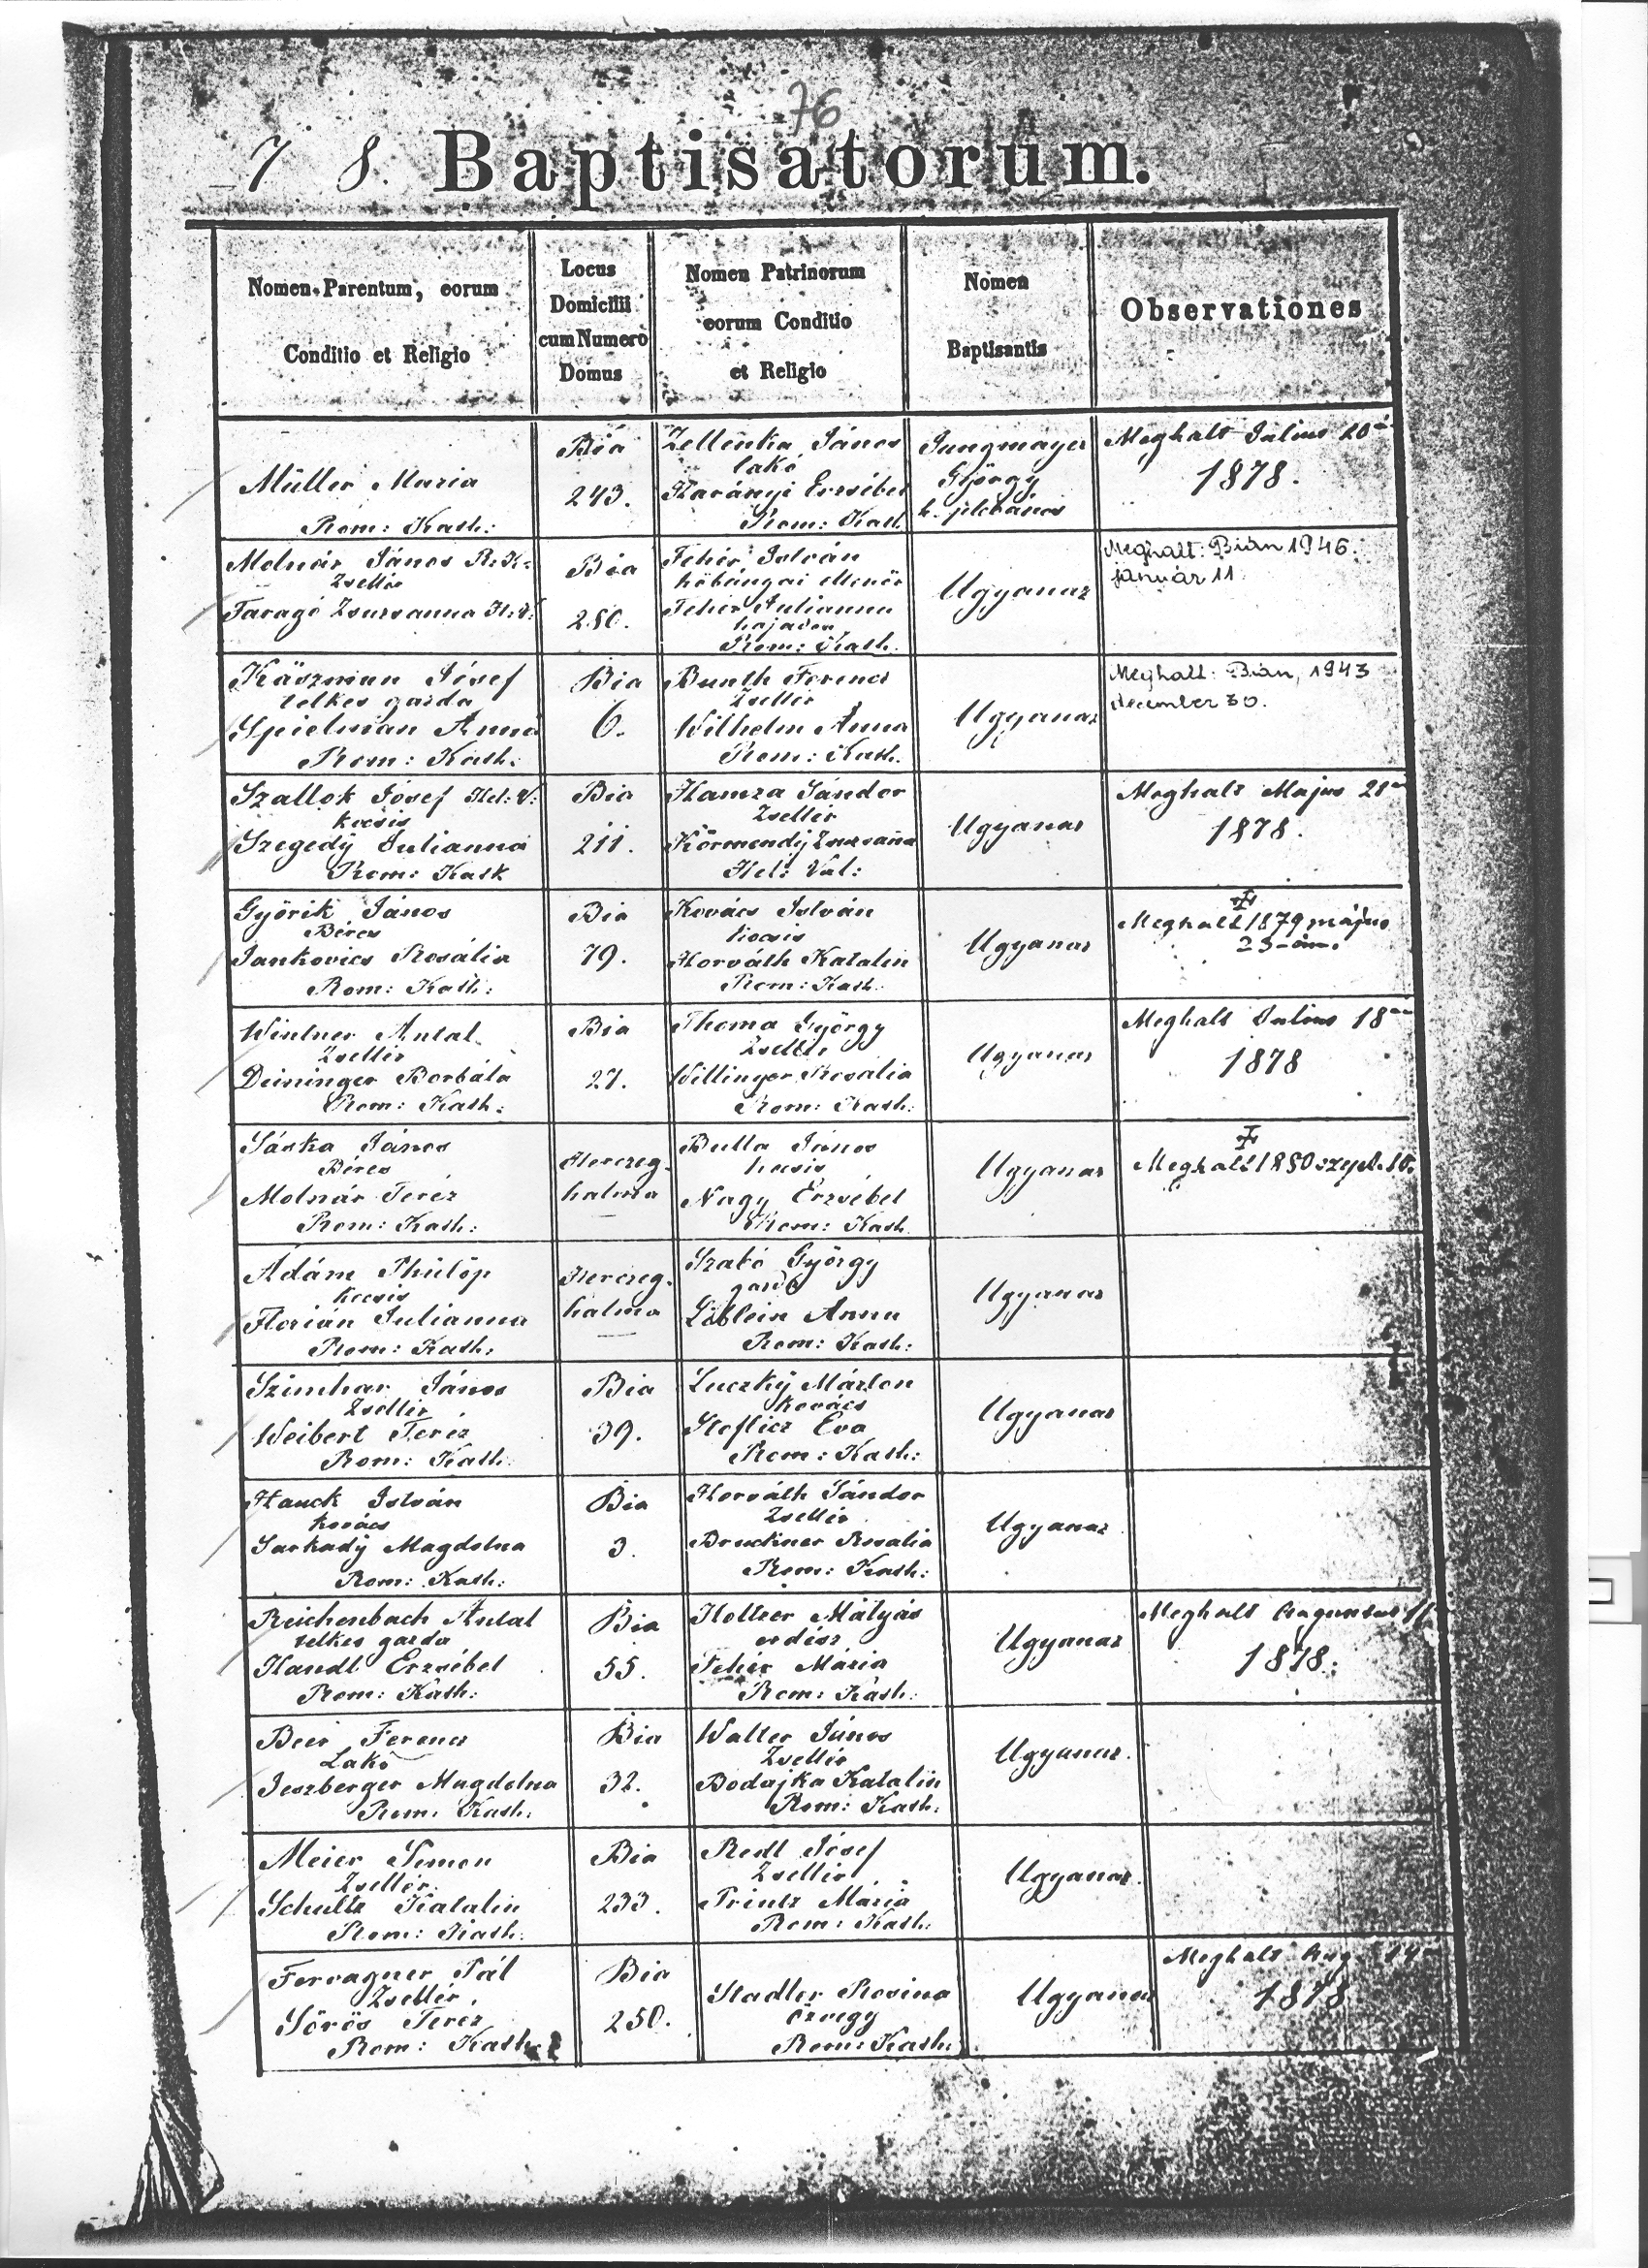 76
7 8. Baptisatorum.
Nomen Parentum, eorum
Conditio et Religio
Locus
Domicilii
cum Numero
Domus
Nomen Patrinorum
eorum Conditio
et Religio
Nomen
Baptisantis
Observationes
Müller Maria
Rom: Kath:
Bia
243.
Zellenka János
lakó
Harányi Erzsébet
Rom: Kath
Jungmayer
György
h. plébános
Meghalt Julius 20
1878.
Molnár János R. K.
Zsellér
Faragó Zsuzsanna H. V.
Bia
280.
Fehér István
kőbányai
Fehér Julianna
hajadon
Rom: Kath.
Ugyanaz
Meghalt: Bián 1946.
január 11.
Kászman Jósef
telkes gazda
Spielman Anna
Rom: Kath:
Bia
6.
Bunth Ferencz
Zsellér
Wilhelm Anna
Rom: Kath.
Ugyanaz
Meghalt: Bián, 1943
december 30.
Szallok Jósef Hel: V:
kocsis
Szegedÿ Julianna
Rom: Kath
Bia
211.
Hamza Sándor
Zsellér
Körmendÿ Zsuzsána
Hel: Val:
Ugyanaz
Meghalt Majus 28
1878.
Györik János
Béres
Jankovics Rosália
Rom: Kath:
Bia
79.
Kovács István
kocsis
Horváth Katalin
Rom: Kath.
Ugyanaz
Meghalt 1879 május
23-án.
Wintner Antal
Zsellér
Deininger Borbála
Rom: Kath:
Bia
27.
Thoma György
Zsellér
Willinger Rosalia
Rom: Kath:
Ugyanaz
Meghalt Julius 18
1878
Sáska János
Béres
Molnár Teréz
Rom: Kath:
Herczeg-
halma
Bulla János
kocsis
Nagy Erzsébet
Rom: Kath
Ugyanaz
Meghalt 1880 szept. 10.
Ádám Phülöp
kocsis
Florián Julianna
Rom: Kath:
Herczeg-
halma
Szabó György
gazda
Löblein Anna
Rom: Kath:
Ugyanaz
Szimhar János
Zsellér
Weibert Teréz
Rom: Kath:
Bia
39.
Luczkÿ Márton
kovács
Steflicz Éva
Rom: Kath:
Ugyanaz
Hauck István
kovács
Sarkadÿ Magdolna
Rom: Kath:
Bia
3.
Horváth Sándor
Zsellér
Bruckner Rosalia
Rom: Kath:
Ugyanaz
Reichenbach Antal
telkes gazda
Handl Erzsébet
Rom: Kath:
Bia
55.
Holtzer Mátyás
erdész
Fehér Mária
Rom: Kath:
Ugyanaz
Meghalt Augustus
1878.
Beér Ferencz
Lakó
Jeszberger Magdolna
Rom: Kath:
Bia
32.
Walter János
Zsellér
Bodajka Katalin
Rom: Kath:
Ugyanaz
Meier Simon
Zsellér
Schultz Katalin
Rom: Kath:
Bia
233.
Redl Jósef
Zsellér
Printz Mária
Rom: Kath:
Ugyanaz
Fervagner Pál
Zsellér
Sörös Teréz
Rom: Kath:
Bia
250.
Stadler Rosina
özvegy
Rom: Kath:
Ugyanaz
Meghalt Aug
1878